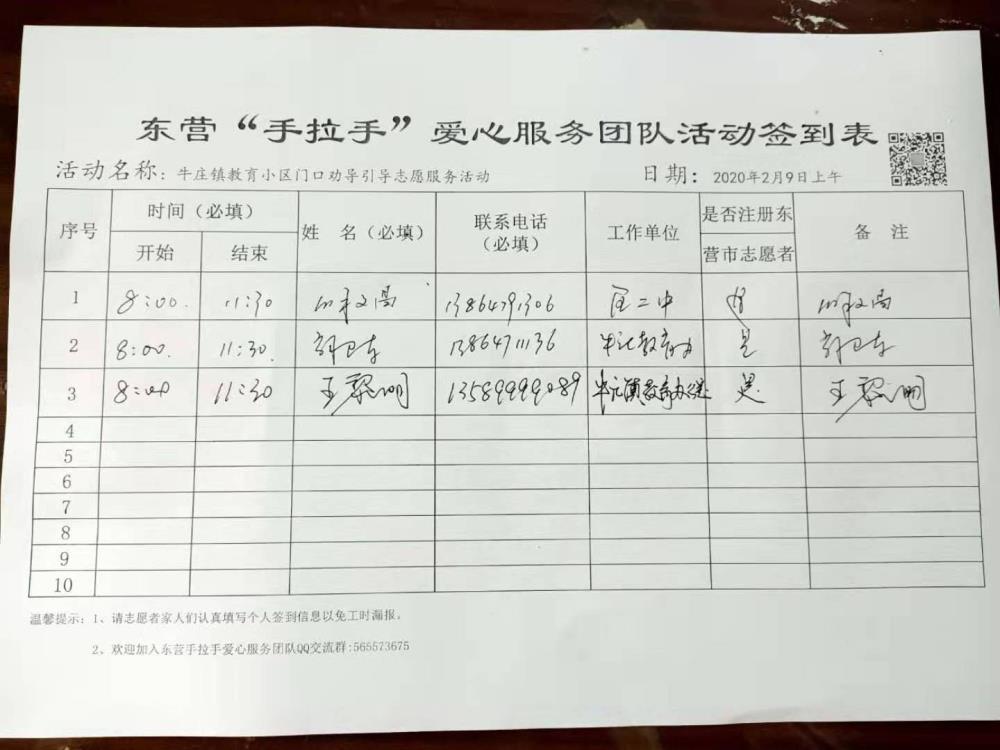 东营“手拉手”爱心服务团队活动签到表
活动名称：牛庄镇教育小区门口劝导引导志愿服务活动 日期：2020年2月9日上午
序号 时间（必填） 姓 名（必填） 联系电话（必填） 工作单位 是否注册东营市志愿者 备 注
开始 结束
1 8:00 11:30 13864791306 二中
2 8:00 11:30 13864711136 牛庄教育办 是
3 8:00 11:30 王黎明 13589999089 牛庄镇教育办 是 王黎明
4
5
6
7
8
9
10
温馨提示：1、请志愿者家人们认真填写个人签到信息以免工时漏报。
2、欢迎加入东营手拉手爱心服务团队QQ交流群:565573675